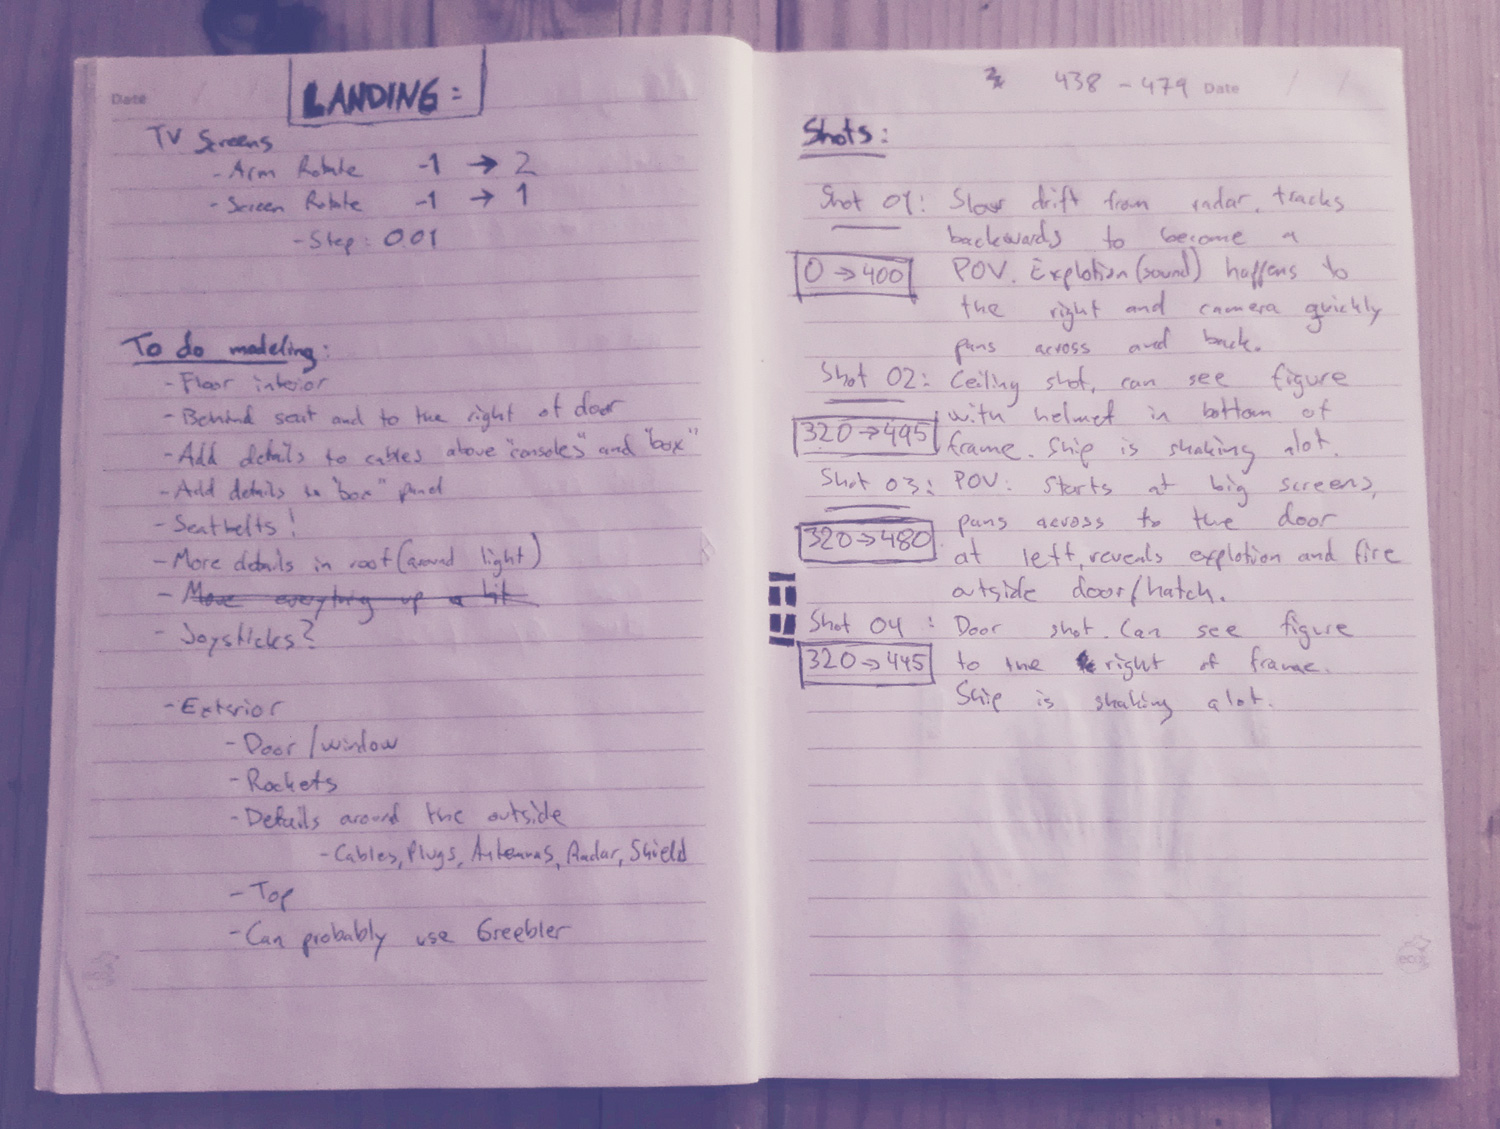 Date
LANDING:
TV Screens
- Arm Rotate -1 → 2
- Screen Rotate -1 → 1
- Step: 0.01
To do modeling:
- Floor interior
- Behind seat and to the right of door
- Add details to cables above "consoles" and "box"
- Add details to "box" panel
- Seatbelts!
- More details in roof (around light)
- Move everything up a bit
- Joysticks?
- Exterior
- Door/window
- Rockets
- Details around the outside
- Cables, Plugs, Antennas, Radar, Shield
- Top
- Can probably use Greebler
438 - 479 Date
Shots:
Shot 01: Slow drift from radar, tracks
backwards to become a
0 → 400 POV. Explotion (sound) happens to
the right and camera quickly
pans across and back.
Shot 02: Ceiling shot, can see figure
with helmet in bottom of
320 → 495 frame. Ship is shaking alot.
Shot 03: POV: Starts at big screens,
pans across to the door
320 → 480 at left, reveals explotion and fire
outside door/hatch.
Shot 04: Door shot. Can see figure
320 → 445 to the right of frame.
Ship is shaking alot.
eco